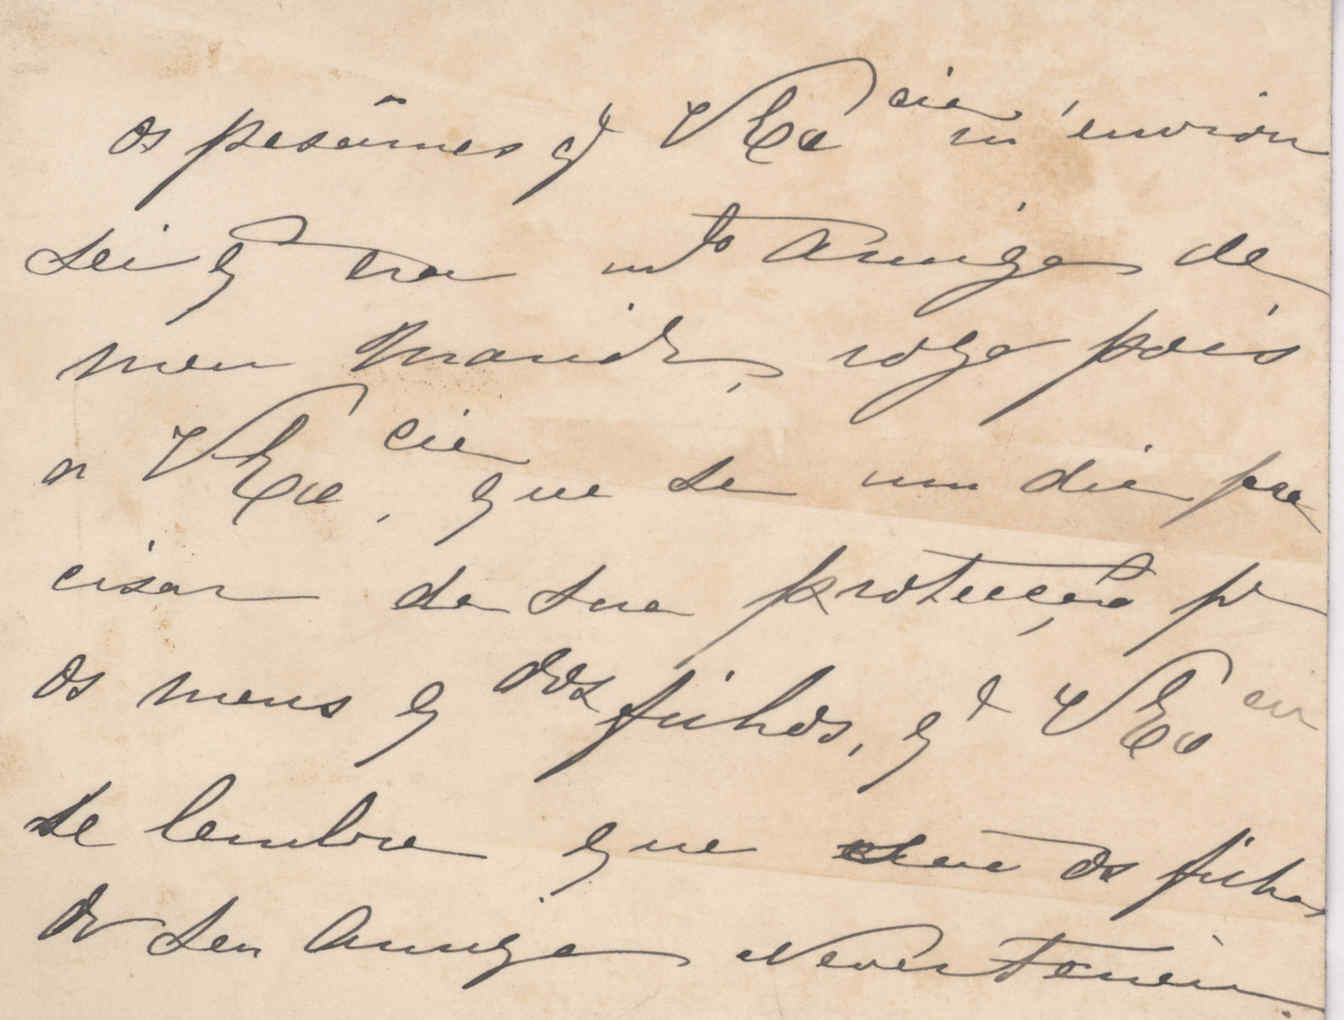 os pesâmes q̃ V Exª cia m'enviou
sei q era mto Amigo de
meu Marido, rogo pois
a V Exª cia, que se um dia pre
cisar da sua protecção p
os meus q dos filhos, q̃ V Exª cia
se lembre que os filhos
do seu Amigo Neves Ferreira